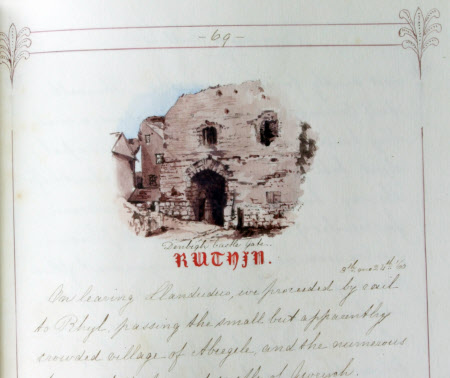 - 69 -
Denbigh Castle gate.
RUTHIN.
On leaving Llandudno, we proceeded by rail
to Rhyl, passing the small but apparently
crowded village of Abergele, and the numerous